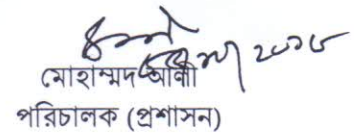 মোহাম্মদ আলী
পরিচালক (প্রশাসন)